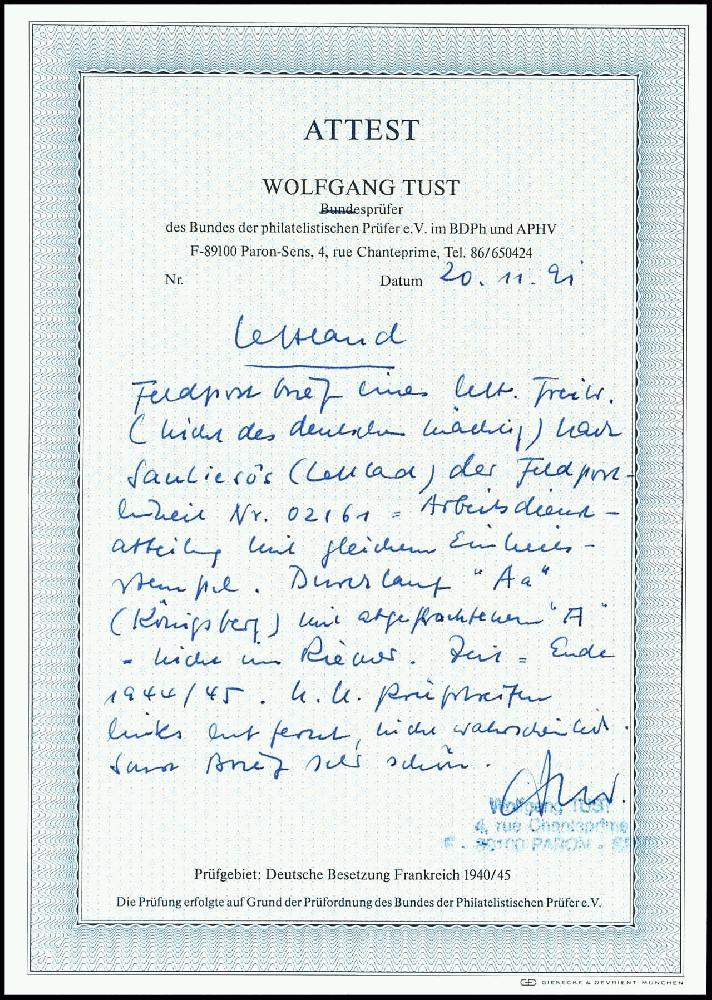 ATTEST
WOLFGANG TUST
Bundesprüfer
des Bundes der philatelistischen Prüfer e.V. im BDPh und APHV
F-89100 Paron-Sens, 4, rue Chanteprime, Tel. 86/650424
Nr. Datum 20. 11. 91
Lettland
Feldpostbrief eines lett. Freiw.
(nicht des deutschen mächtig) nach
Saulieros (Lettland) der Feldpost-
einheit Nr. 02161 = Arbeitsdienst-
abteilung mit gleichem Einheits-
stempel. Durchlauf "Aa"
(Königsberg) mit abgeflachtenem "A"
- nicht im Riemer. Zeit = Ende
1944/45. U. U. Prüfstreifen
links entfernt, nicht wahrscheinlich.
Sonst Brief sehr schön.
Wolfgang TUST
4, rue Chanteprime
F - 89100 PARON -
Prüfgebiet: Deutsche Besetzung Frankreich 1940/45
Die Prüfung erfolgte auf Grund der Prüfordnung des Bundes der Philatelistischen Prüfer e.V.
GIESECKE & DEVRIENT MÜNCHEN